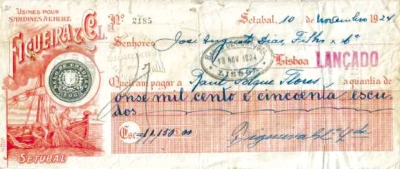 USINES POUR
SARDINES A ÉPERE
FIGUEIRA & Cª L
SETUBAL
Nº 2185
Setubal, 10 de Novembro de 1924
Senhores José Augusto Dias, Filho & Cª
Lisboa LANÇADO
13 NOV 1924
LISBOA
Queiram pagar a Raul Flores a quantia de
onse mil cento e cincoenta escu
dos
Esc 11,150.00